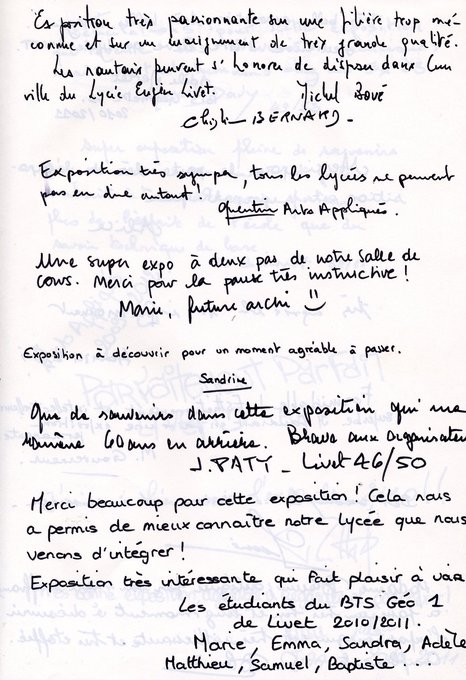 Exposition très passionnante sur une filière trop mé-
connue et sur un enseignement de très grande qualité.
Les nantais peuvent s'honorer de disposer dans leur
ville du Lycée Eugène Livet. Michel Bové
BERNARD -
Exposition très sympa, tous les lycées ne peuvent
pas en dire autant !
Quentin Arts Appliqués.
Une super expo à deux pas de notre salle de
cours. Merci pour la pause très instructive !
Marie, future archi
Exposition à découvrir pour un moment agréable à passer.
Sandrine
Que de souvenirs dans cette exposition qui me
ramène 60 ans en arrière. Bravo aux organisateu
J. PATY _ Livet 46/50
Merci beaucoup pour cette exposition ! Cela nous
a permis de mieux connaître notre lycée que nous
venons d'intégrer !
Exposition très intéressante qui fait plaisir à voir
Les étudiants du BTS Géo 1
de Livet 2010/2011.
Marie, Emma, Sandra, Adèle
Matthieu, Samuel, Baptiste ...